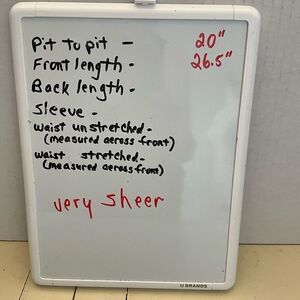 Pit to pit - 20"
Front length - 26.5"
Back length -
Sleeve -
waist unstretched -
(measured across front)
waist stretched -
(measured across front)
very sheer
U BRANDS